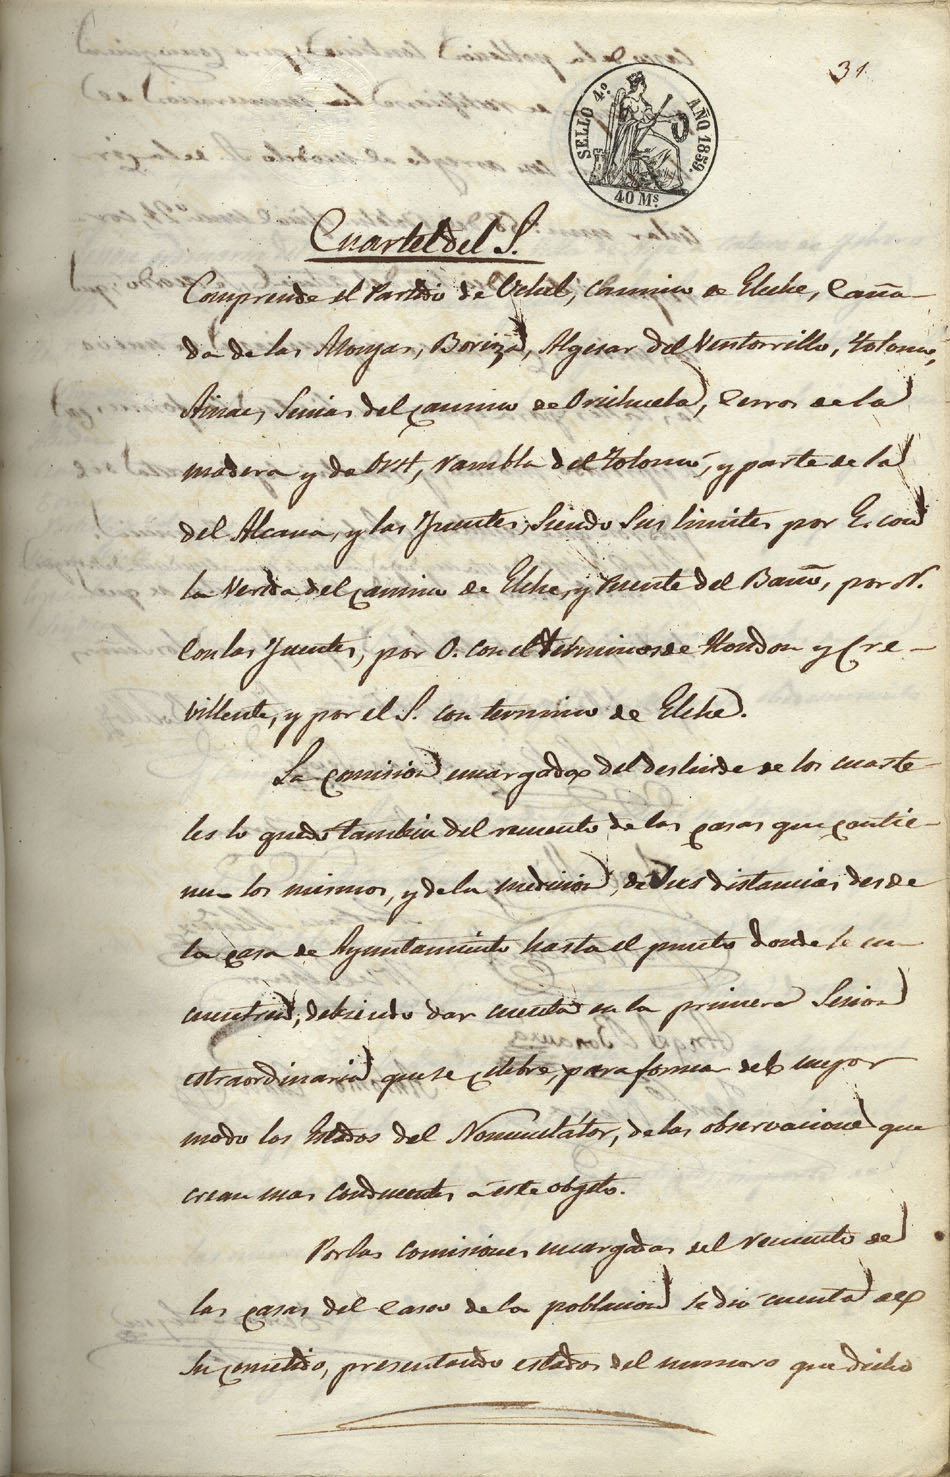 31
SELLO 4º AÑO 1859.
40 Ms.
Cuartel del S.
Comprende el Partido de Uchel, Camino de Elche, Caña-
da de las Monjas, Boriza, Algesar del Ventorrillo, Tolomó,
Ainas, Senias del camino de Orihuela, Cerros de la
madera y de Ors, rambla del Tolomó, y parte de la
del Alcana, y las Fuentes, siendo sus limites por E. con
la Vereda del camino de Elche, y fuente del Baño, por N.
con las Fuentes, por O. con el terminos de Hondon y Cre-
villente, y por el S. con termino de Elche.
La comision encargada del deslinde de los cuarte-
les lo quedó tambien del recuento de las casas que contie-
nen los mismos, y de la medicion de sus distancias desde
la casa de Ayuntamiento hasta el punto donde se en-
cuentren, debiendo dar cuenta en la primera Sesion
estraordinaria que se celebre, para formar del mejor
modo los Estados del Nomenclátor, de las observaciones que
crean mas conducentes á este objeto.
Por las comisiones encargadas del recuento de
las casas del Casco de la poblacion se dió cuenta de
su cometido, presentando estados del numero que dicho